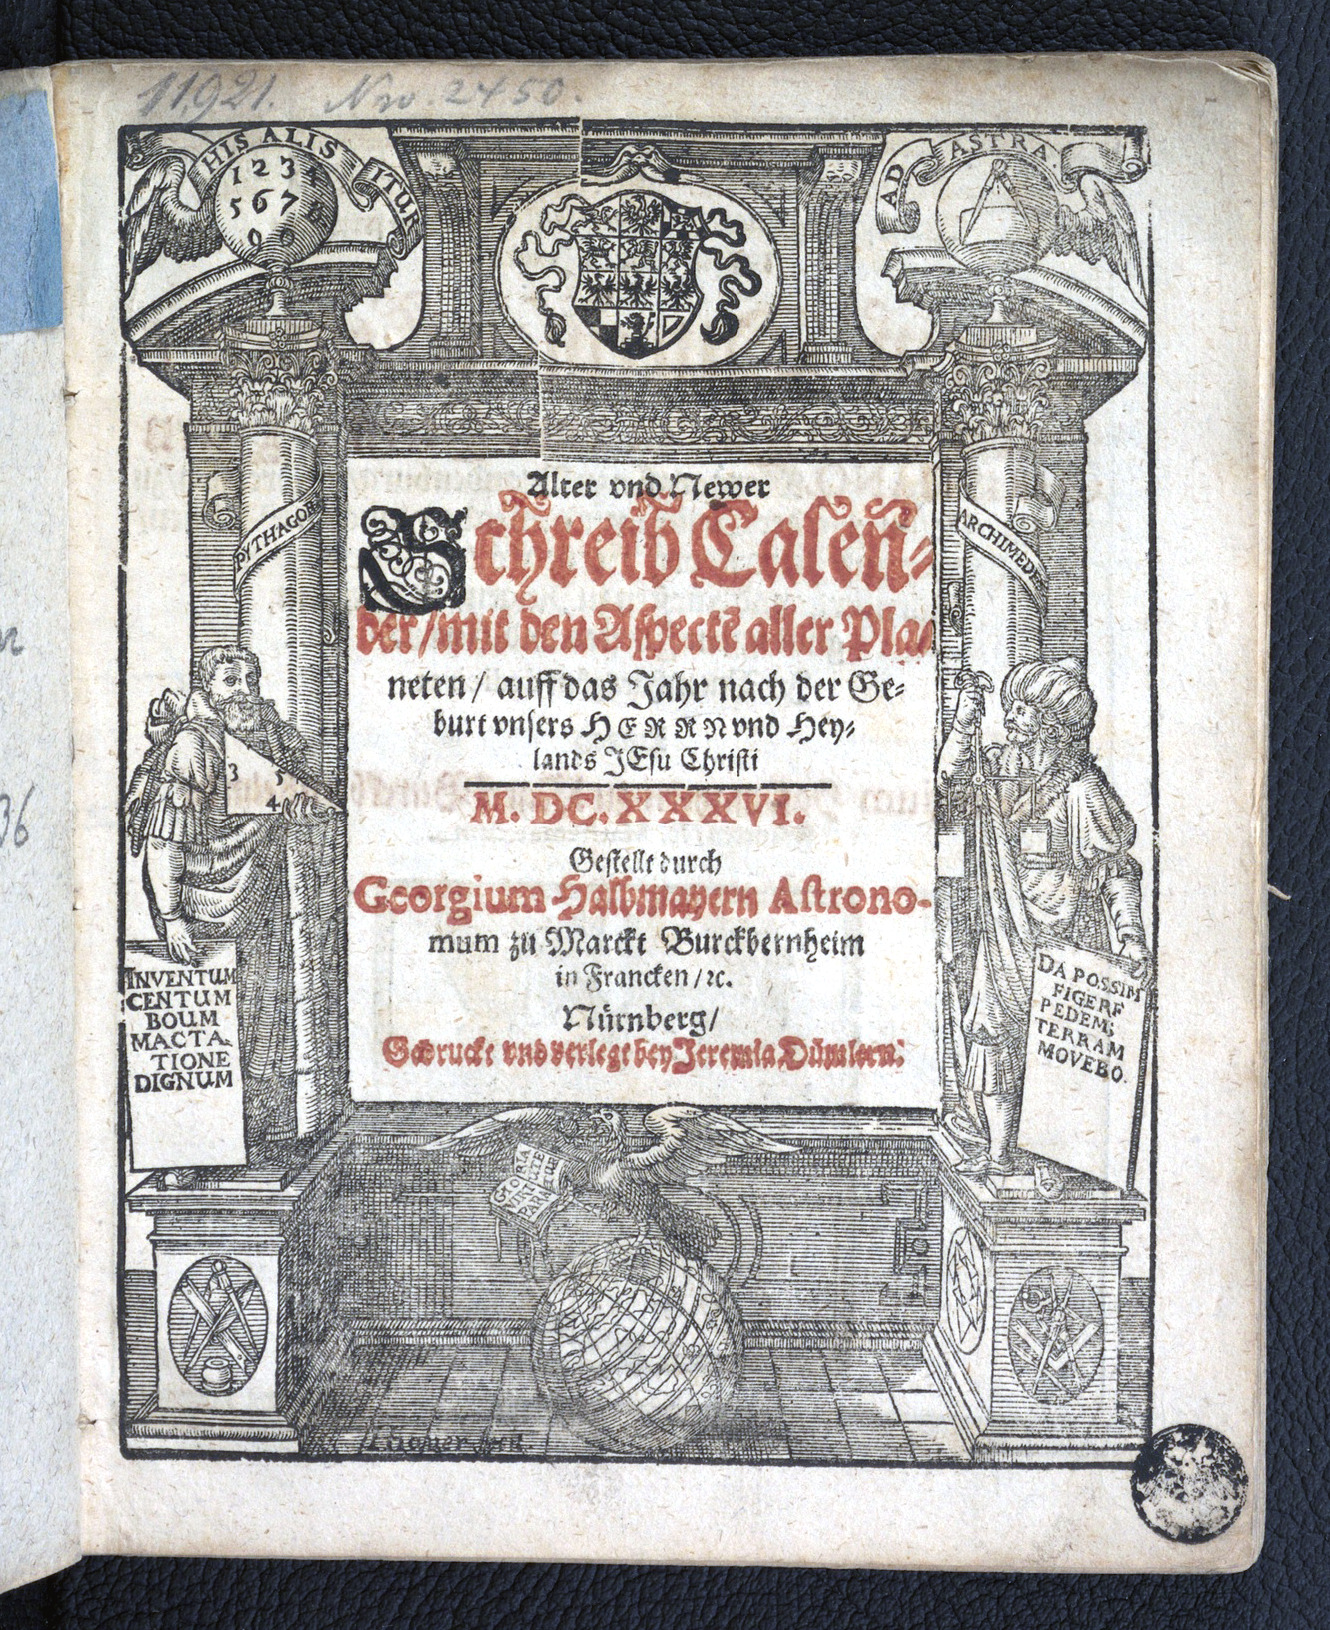 11921. Nro. 2450.
HIS ALIS ITUR
AD ASTRA
1 2 3 4
5 6 7 8
9 0
PYTHAGOR
ARCHIMEDES
Alter vnd Newer
Schreib Calen-
der/mit den Aspectẽ aller Pla-
neten/ auff das Jahr nach der Ge-
burt vnsers HERRN vnd Hey-
lands JEsu Christi
M. DC. XXXVI.
Gestellt durch
Georgium Halbmayern Astrono-
mum zu Marckt Burckbernheim
in Francken/ ꝛc.
Nürnberg/
Gedruckt vnd verlegt bey Jeremia Dümlern.
3 5
4
INVENTUM
CENTUM
BOUM
MACTA-
TIONE
DIGNUM
DA POSSIM
FIGERE
PEDEM;
TERRAM
MOVEBO.
36